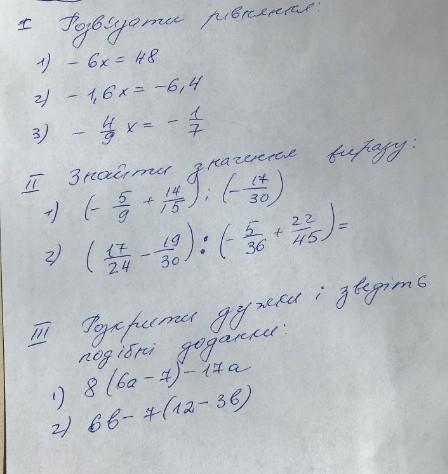 I Розв'язати рівняння:
1) - 6x = 48
2) - 1,6x = -6,4
3) - 4/9 x = - 1/7
II Знайти значення виразу:
1) (- 5/9 + 14/15) : (- 17/30)
2) (17/24 - 19/30) : (- 5/36 + 22/45) =
III Розкрити дужки і зведіть
подібні доданки:
1) 8 (6a - 7) - 17a
2) 6b - 7 (12 - 3b)